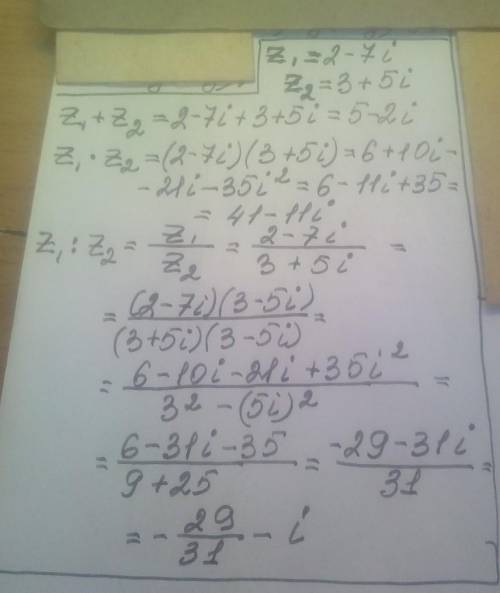 z₁ = 2 - 7i
z₂ = 3 + 5i
z₁ + z₂ = 2 - 7i + 3 + 5i = 5 - 2i
z₁ · z₂ = (2 - 7i)(3 + 5i) = 6 + 10i -
- 21i - 35i² = 6 - 11i + 35 =
= 41 - 11i
z₁ : z₂ = z₁/z₂ = (2 - 7i)/(3 + 5i) =
= (2 - 7i)(3 - 5i)/(3 + 5i)(3 - 5i) =
= (6 - 10i - 21i + 35i²)/(3² - (5i)²) =
= (6 - 31i - 35)/(9 + 25) = (-29 - 31i)/31 =
= - 29/31 - i